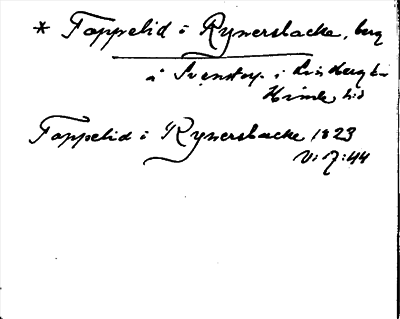 * Toppelid i Rynersbacke, berg
å Svenstorp i Lindberg sn
Himle hd
Toppelid i Rynersbacke 1823
V: 7: 44